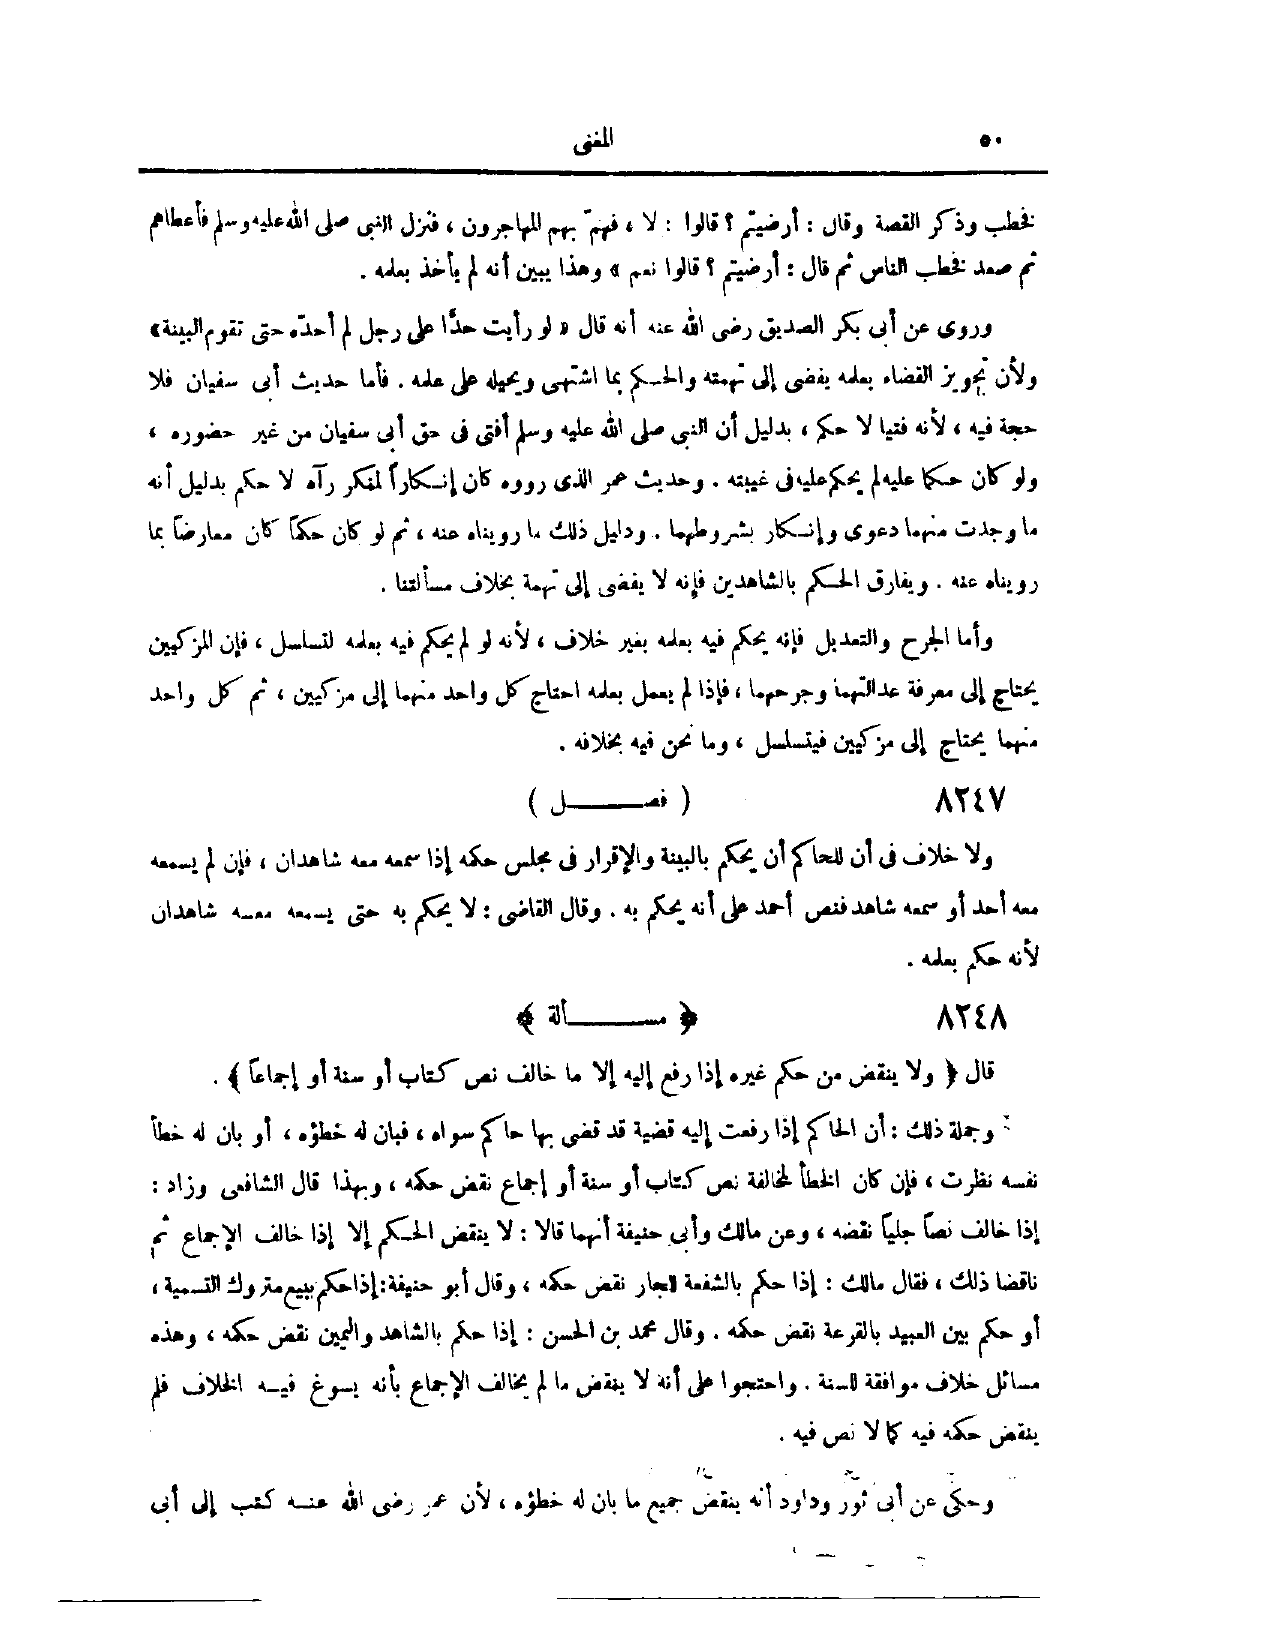 ٥٠
المغنى
فخطب وذكر القصة وقال : أرضيتم ؟ قالوا : لا ، فهمّ بهم المهاجرون ، فنزل النبى صلى الله عليه وسلم فأعطاهم
ثم صعد فخطب الناس ثم قال : أرضيتم ؟ قالوا نعم » وهذا يبين أنه لم يأخذ بعلمه .
وروى عن أبى بكر الصديق رضى الله عنه أنه قال « لو رأيت حدًّا على رجل لم أحدّه حتى تقوم البينة»
ولأن تجويز القضاء بعلمه يفضى إلى تهمته والحكم بما اشتهى ويحيله على علمه . فأما حديث أبى سفيان فلا
حجة فيه ، لأنه فتيا لا حكم ، بدليل أن النبى صلى الله عليه وسلم أفتى فى حق أبى سفيان من غير حضوره ،
ولو كان حكما عليه لم يحكم عليه فى غيبته . وحديث عمر الذى رووه كان إنكاراً لمنكر رآه لا حكم بدليل أنه
ما وجدت منهما دعوى وإنكار بشروطهما . ودليل ذلك ما رويناه عنه ، ثم لو كان حكماً كان معارضاً بما
رويناه عنه . ويفارق الحكم بالشاهدين فإنه لا يفضى إلى تهمة بخلاف مسألتنا .
وأما الجرح والتعديل فإنه يحكم فيه بعلمه بغير خلاف ، لأنه لو لم يحكم فيه بعلمه لتسلسل ، فإن المزكيين
يحتاج إلى معرفة عدالتهما وجرحهما ، فإذا لم يعمل بعلمه احتاج كل واحد منهما إلى مزكيين ، ثم كل واحد
منهما يحتاج إلى مزكيين فيتسلسل ، وما نحن فيه بخلافه .
٨٢٤٧ ( فصل )
ولا خلاف فى أن للحاكم أن يحكم بالبينة والإقرار فى مجلس حكمه إذا سمعه معه شاهدان ، فإن لم يسمعه
معه أحد أو سمعه شاهد فنص أحمد على أنه يحكم به . وقال القاضى : لا يحكم به حتى يسمعه معه شاهدان
لأنه حكم بعلمه .
٨٢٤٨ ﴿ مسألة ﴾
قال ﴿ ولا ينقض من حكم غيره إذا رفع إليه إلا ما خالف نص كتاب أو سنة أو إجماعاً ﴾ .
وجملة ذلك : أن الحاكم إذا رفعت إليه قضية قد قضى بها حاكم سواه ، فبان له خطؤه ، أو بان له خطأ
نفسه نظرت ، فإن كان الخطأ لمخالفة نص كتاب أو سنة أو إجماع نقض حكمه ، وبهذا قال الشافعى وزاد :
إذا خالف نصاً جلياً نقضه ، وعن مالك وأبى حنيفة أنهما قالا : لا ينقض الحكم إلا إذا خالف الإجماع ثم
ناقضا ذلك ، فقال مالك : إذا حكم بالشفعة للجار نقض حكمه ، وقال أبو حنيفة: إذا حكم ببيع متروك التسمية ،
أو حكم بين العبيد بالقرعة نقض حكمه . وقال محمد بن الحسن : إذا حكم بالشاهد واليمين نقض حكمه ، وهذه
مسائل خلاف موافقة للسنة . واحتجوا على أنه لا ينقض ما لم يخالف الإجماع بأنه يسوغ فيه الخلاف فلم
ينقض حكمه فيه كما لا نص فيه .
وحكى عن أبى ثور وداود أنه ينقض جميع ما بان له خطؤه ، لأن عمر رضى الله عنه كتب إلى أبى